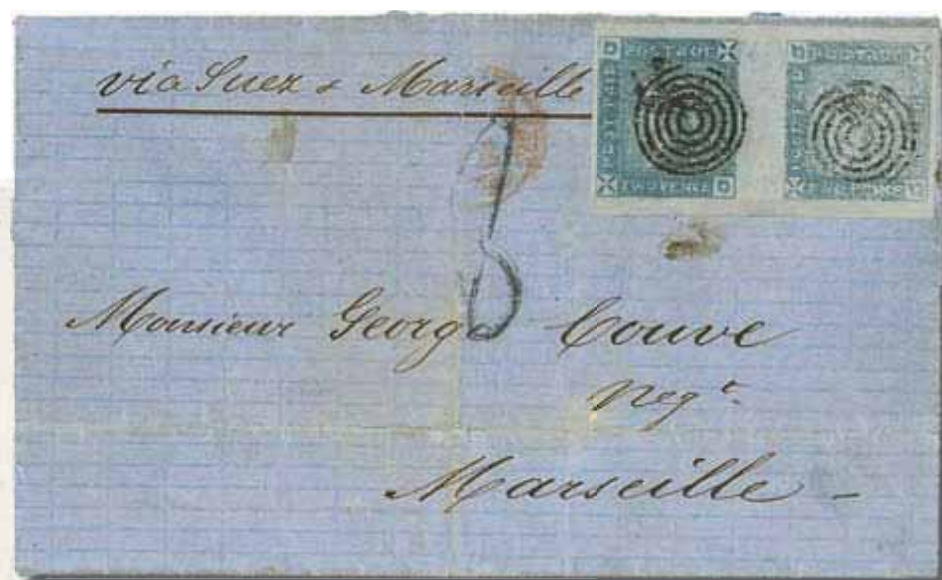 via Suez & Marseille
POSTAGE
POSTAGE
TWO PENCE
POSTAGE
8
Monsieur George Couve
Negt.
Marseille -